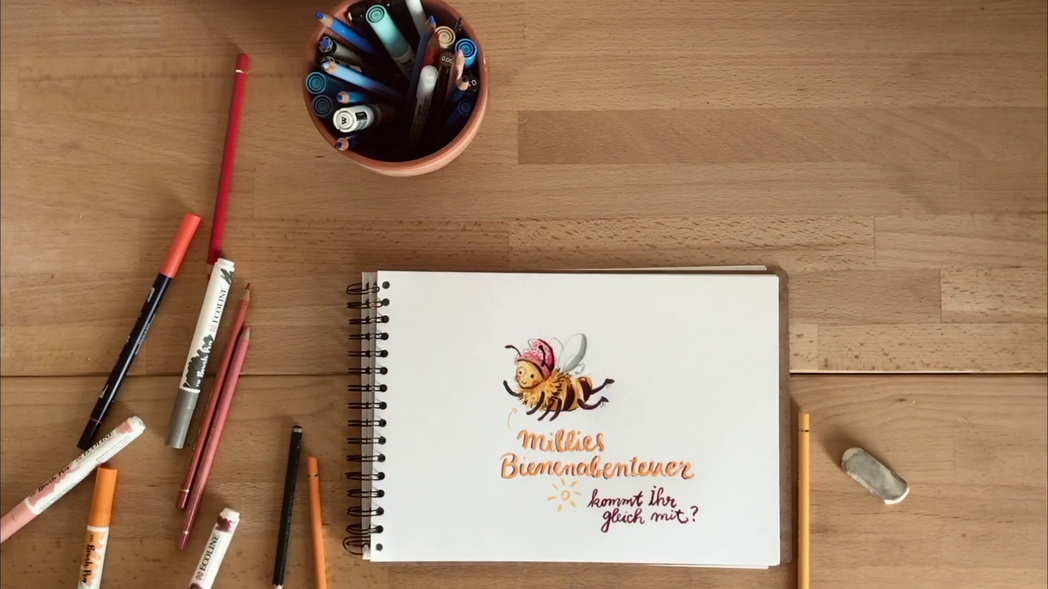 ECOLINE
Brush Pen
Millies
Bienenabenteuer
kommt Ihr
gleich mit?
Brush Pen
ECOLINE